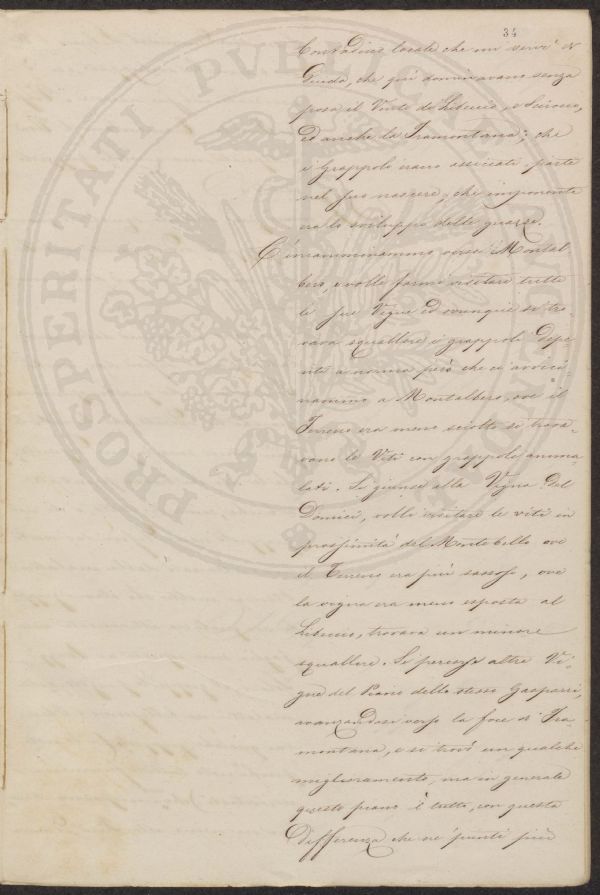 34
Contadino locale che mi servì di
Guida, che quì dominavano senza
posa il Vento di Libeccio, o Scirocco,
ed anche la Tramontana; che
i Grappoli erano assiccati parte
nel suo nascere, che imponente
era lo sviluppo delle
C'incamminammo verso Montal
bero, e volle farmi visitare tutte
le sue Vigne ed ovunque si tro-
vava squallore i grappoli
a norma però che ci avvici-
nammo a Montalbero, ove il
Terreno era meno sciolto si trova-
vano le Viti con grappoli amma-
lati. Si giunse alla Vigna del
volli visitare le viti in
prossimità del Montebello ove
il Terreno era più sassoso, ove
la vigna era meno esposta al
Libeccio, trovava un minore
squallore. Si percorse altre Vi-
gne del Piano dello stesso Gasparri,
avanzandosi verso la foce di Tra
montana, e si trovò un qualche
miglioramento, ma in generale
questo piano è tutto, con questa
Differenza che ne' punti più
PROSPERITATI PVBLICAE